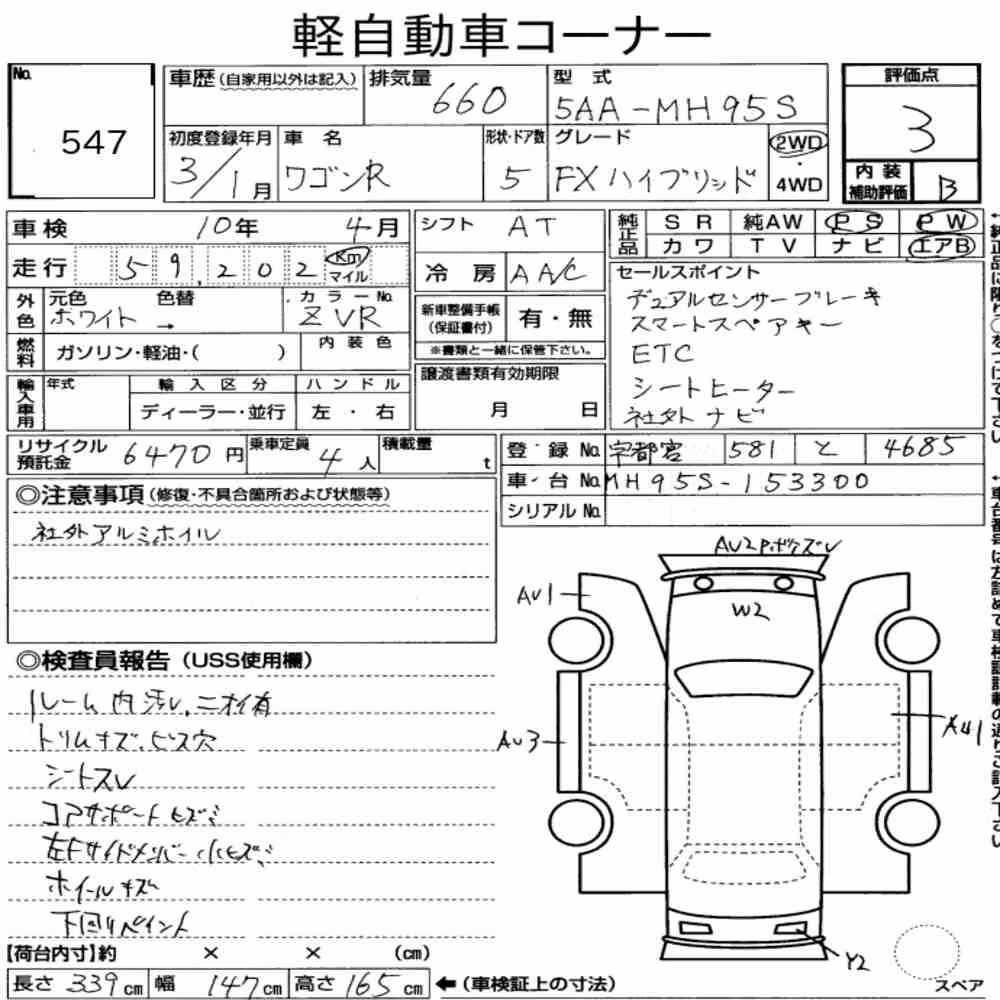 軽自動車コーナー
No. 547
車歴(自家用以外は記入)
排気量 660
型式 5AA-MH95S
評価点 3
初度登録年月 3/1月
車名 ワゴンR
形状・ドア数 5
グレード FXハイブリッド
2WD・4WD
内装補助評価 B
車検 10年 4月
シフト AT
純正品 SR 純AW PS PW
カワ TV ナビ エアB
走行 59,202 Km マイル
冷房 AA/C
セールスポイント
デュアルセンサーブレーキ
スマートスペアキー
ETC
シートヒーター
社外ナビ
外色 元色 ホワイト → 色替
カラーNo. ZVR
新車整備手帳(保証書付) 有・無
※書類と一緒に保管下さい。
燃料 ガソリン・軽油・( )
内装色
譲渡書類有効期限 月 日
輸入車用 年式 輸入区分 ハンドル
ディーラー・並行 左・右
リサイクル預託金 6470円
乗車定員 4人
積載量 t
登録No. 宇都宮 581 と 4685
車台No. MH95S-153300
シリアルNo.
◎注意事項(修復・不具合箇所および状態等)
社外アルミホイル
◎検査員報告(USS使用欄)
ルーム内汚レ、ニオイ有
トリムキズ、ビス穴
シートスレ
コアサポートヒズミ
左Fサイドメンバー小ヒズミ
ホイールキズ
下回りペイント
AU2 P.ボケズレ
AU1
W2
AU3
A41
Y2
スペア
【荷台内寸】約 × × (cm)
長さ 339cm 幅 147cm 高さ 165cm
←(車検証上の寸法)